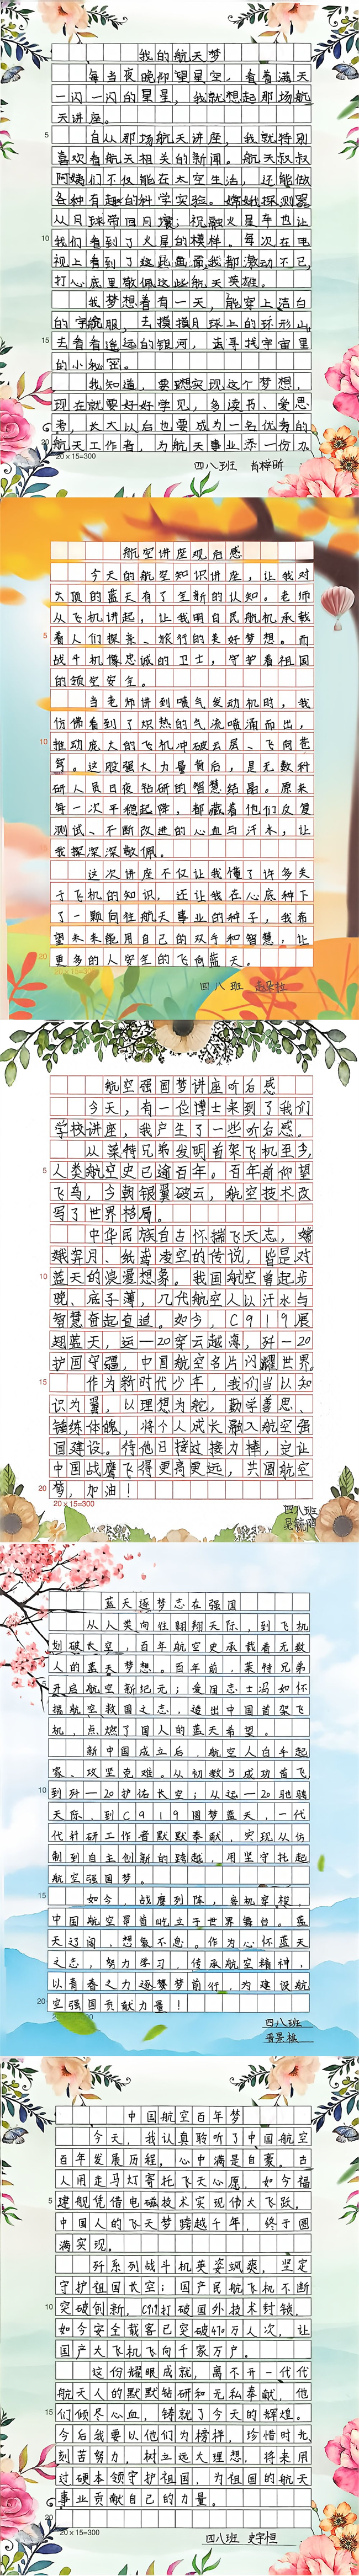 我的航天梦
每当夜晚仰望星空，看着满天
一闪一闪的星星，我就想起那场航
天讲座。
5
自从那场航天讲座，我就特别
喜欢看航天相关的新闻。航天叔叔
阿姨们不仅能在太空生活，还能做
各种有趣的科学实验。嫦娥探测器
从月球带回月壤；祝融火星车也让
10
我们看到了火星的模样。每次在电
视上看到了这些画面，我都激动不已，
打心底里敬佩这些航天英雄。
我梦想着有一天，能穿上洁白
的宇航服，去摸摸月球上的环形山，
15
去看看遥远的银河，去寻找宇宙里
的小秘密。
我知道，要想实现这个梦想，
现在就要好好学习，多读书、爱思
考，长大以后也要成为一名优秀的
20
航天工作者，为航天事业添一份力。
20×15=300
四八班 肖梓昕
航空讲座观后感
今天的航空知识讲座，让我对
头顶的蓝天有了全新的认知。老师
从飞机讲起，让我明白民航机承载
5
着人们探亲、旅行的美好梦想。而
战斗机像忠诚的卫士，守护着祖国
的领空安全。
当老师讲到喷气发动机时，我
仿佛看到了炽热的气流喷涌而出，
10
推动庞大的飞机冲破云层、飞向苍
穹。这股强大力量背后，是无数科
研人员日夜钻研的智慧结晶。原来
每一次平稳起降，都藏着他们反复
测试、不断改进的心血与汗水，让
15
我深深深敬佩。
这次讲座不仅让我懂了许多关
于飞机的知识，还让我在心底种下
了一颗向往航天事业的种子，我希
望未来能用自己的双手和智慧，让
20
更多的人安全的飞向蓝天。
20×15=300
四八班
航空强国梦讲座听后感
今天，有一位博士来到了我们
学校讲座，我产生了一些听后感。
从莱特兄弟发明首架飞机至今，
5
人类航空史已逾百年。百年前仰望
飞鸟，今朝银翼破云，航空技术改
写了世界格局。
中华民族自古怀揣飞天志，嫦
娥奔月、纸鸢凌空的传说，皆是对
10
蓝天的浪漫想象。我国航空曾起步
晚、底子薄，几代航空人以汗水与
智慧奋起直追。如今，C919展
翅蓝天，运—20穿云越海，歼—20
护国守疆，中国航空名片闪耀世界。
15
作为新时代少年，我们当以知
识为翼，以理想为舵，勤学善思、
锤炼体魄，将个人成长融入航空强
国建设。待他日接过接力棒，定让
中国战鹰飞得更高更远，共圆航空
20
梦，加油！
20×15=300
四八班
蓝天逐梦志在强国
从人类向往翱翔天际，到飞机
划破长空，百年航空史承载着无数
人的蓝天梦想。百年前，莱特兄弟
开启航空新纪元；爱国志士冯如怀
揣航空救国之志，造出中国首架飞
机，点燃了国人的蓝天希望。
新中国成立后，航空人白手起
家、攻坚克难。从初教5成功首飞，
10
到歼—20护佑长空；从运—20驰骋
天际，到C919圆梦蓝天，一代
代科研工作者默默奉献，实现从仿
制到自主创新的跨越，用坚守托起
航空强国梦。
15
如今，战鹰列阵，客机穿梭，
中国航空昂首屹立于世界舞台。蓝
天辽阔，想象不息。作为心怀蓝天
之志，努力学习，传承航空精神，
以青春之力逐梦前行，为建设航
20
空强国贡献力量！
四八班
中国航空百年梦
今天，我认真聆听了中国航空
百年发展历程，心中满是自豪。古
人用走马灯寄托飞天心愿，如今福
5
建舰凭借电磁技术实现伟大飞跃，
中国人的飞天梦跨越千年，终于圆
满实现。
歼系列战斗机英姿飒爽，坚定
守护祖国长空；国产民航飞机不断
10
突破创新，C919打破国外技术封锁，
如今安全载客已突破470万人次，让
国产大飞机飞向千家万户。
这份耀眼成就，离不开一代代
航天人的默默钻研和无私奉献，他
15
们倾尽心血，铸就了今天的辉煌。
今后我要以他们为榜样，珍惜时光，
刻苦努力，树立远大理想，将来用
过硬本领守护祖国，为祖国的航天
事业贡献自己的力量。
20
20×15=300
四八班 史宇恒